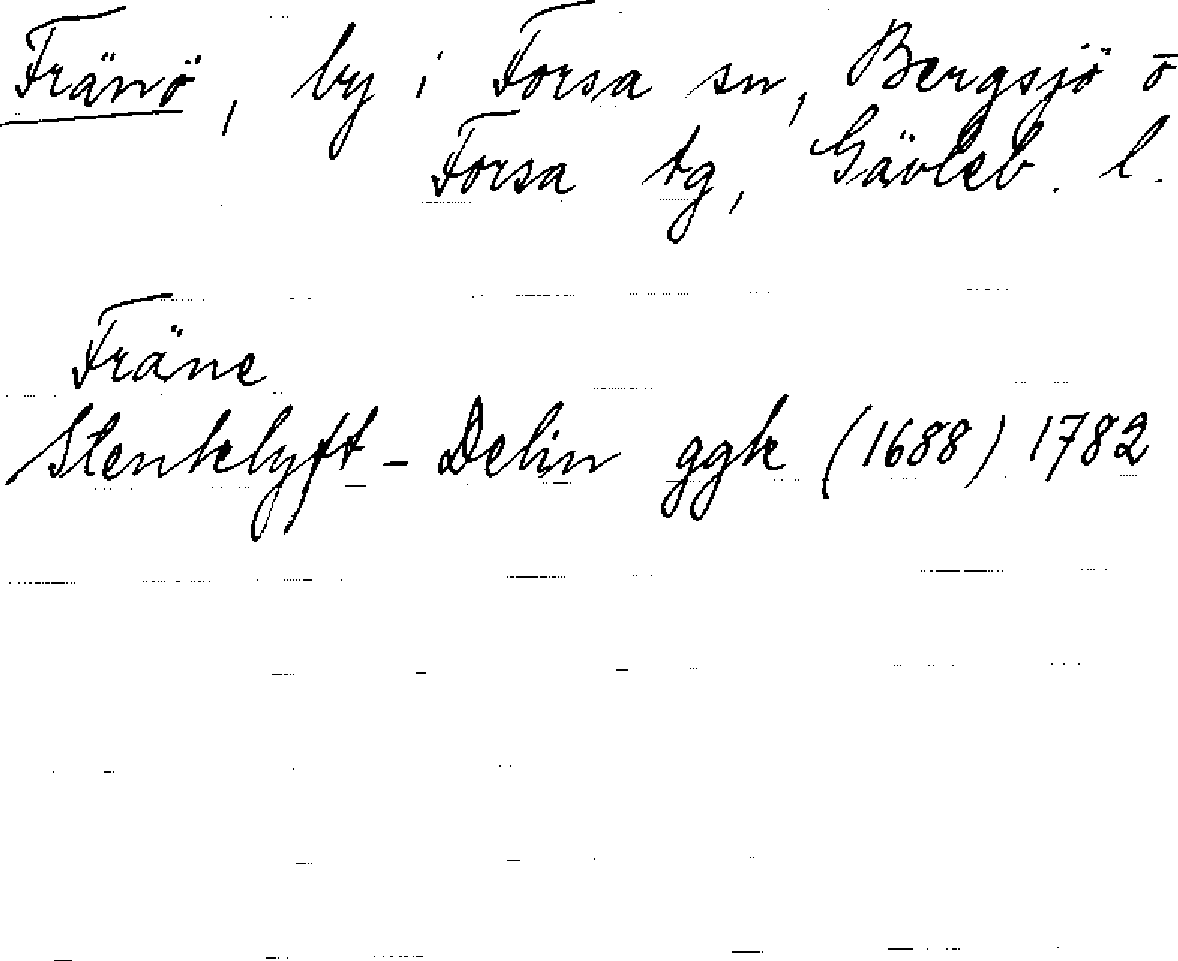 Fränö, by i Forsa sn, Bergsjö o
Forsa tg, Gävleb. l.
Fräne
Stenklyft - Delin ggk (1688) 1782